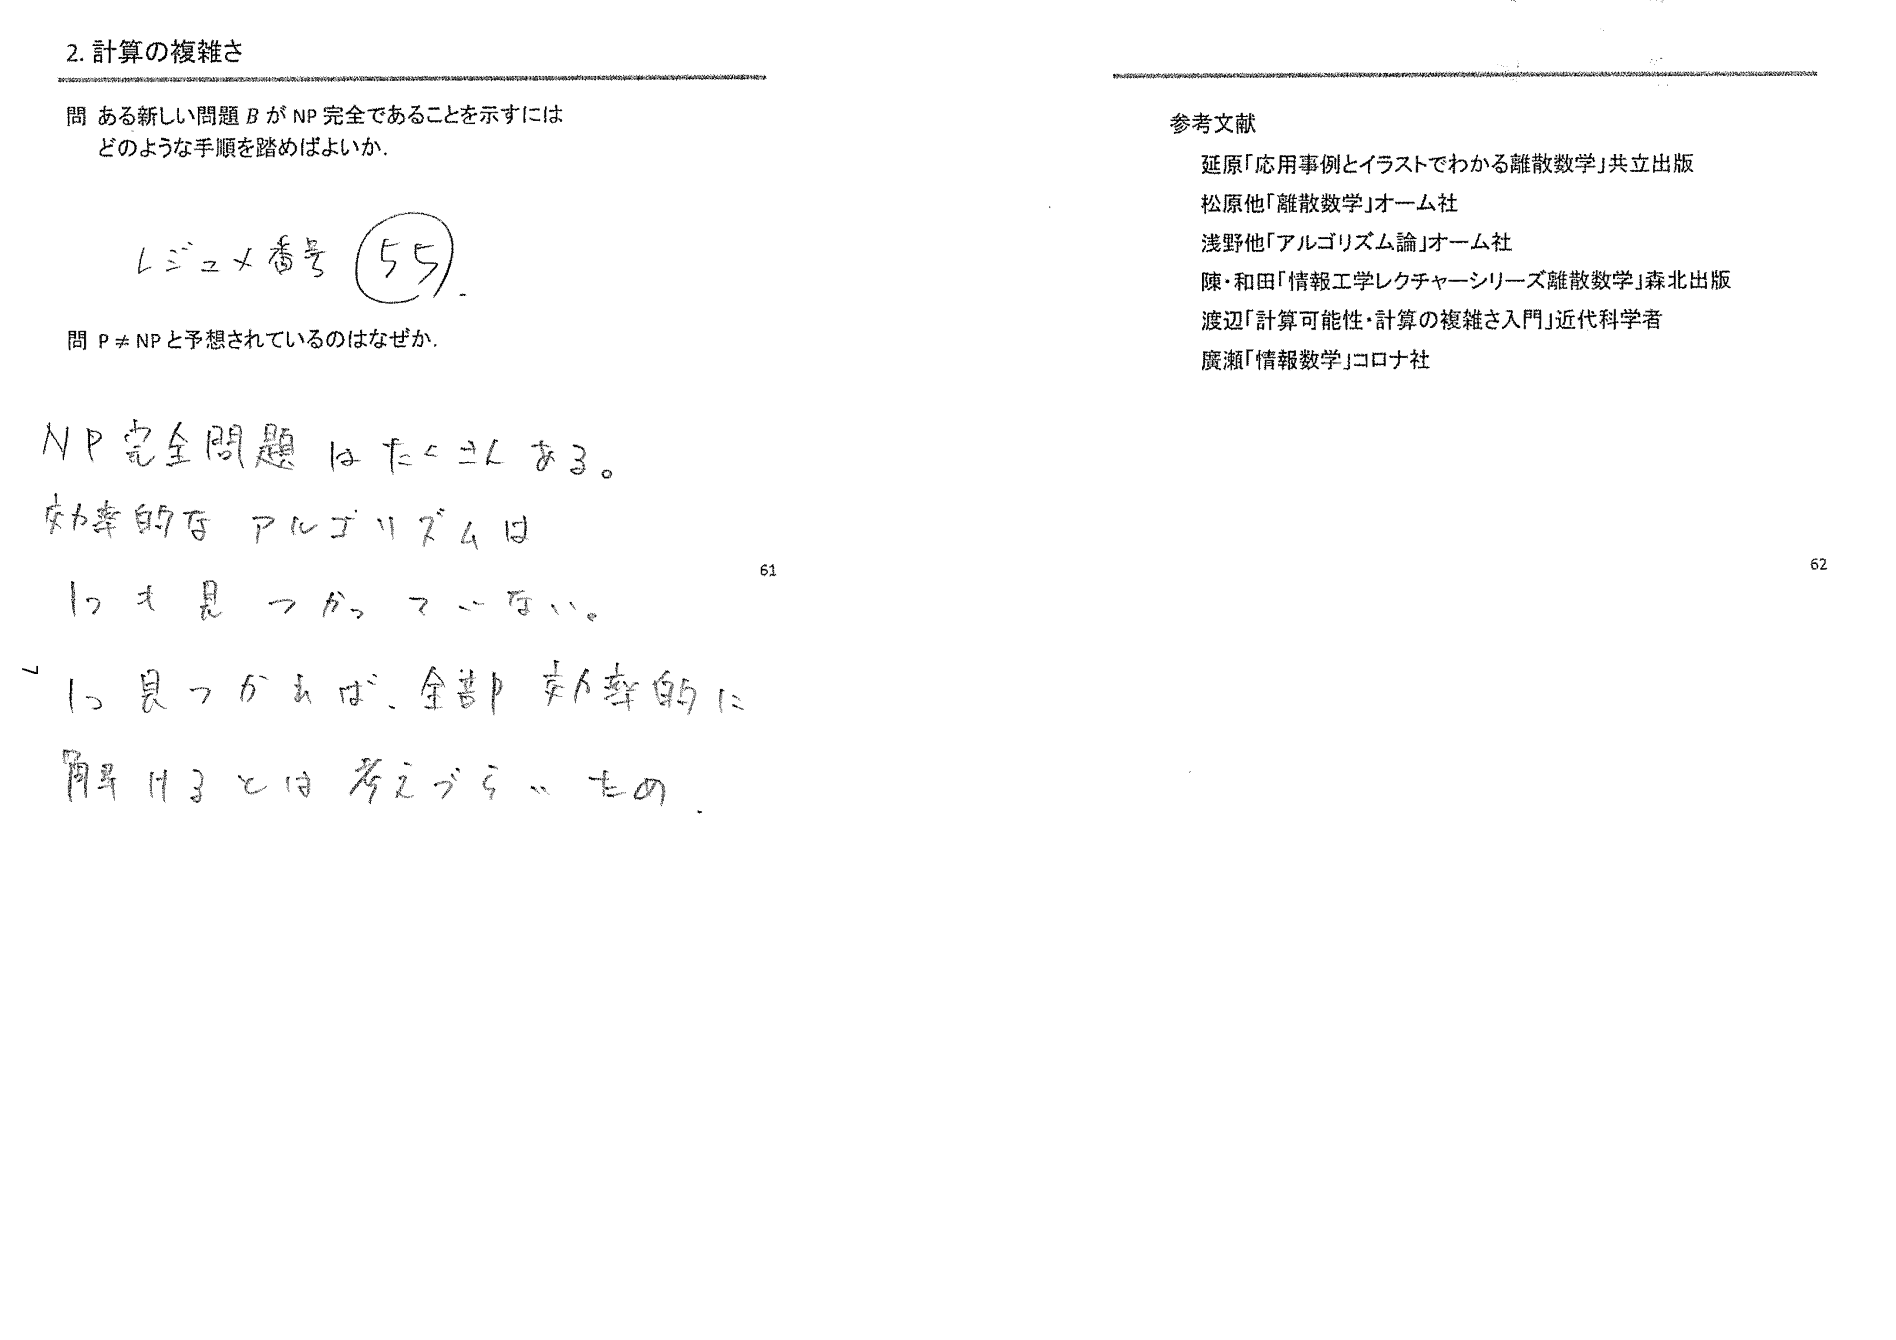 2. 計算の複雑さ
問 ある新しい問題 B が NP 完全であることを示すには
どのような手順を踏めばよいか.
レジュメ番号 55.
問 P ≠ NP と予想されているのはなぜか.
NP完全問題はたくさんある。
効率的なアルゴリズムは
1つも見つかっていない。
1つ見つかれば、全部効率的に
解けるとは考えづらいため.
61
参考文献
延原「応用事例とイラストでわかる離散数学」共立出版
松原他「離散数学」オーム社
浅野他「アルゴリズム論」オーム社
陳・和田「情報工学レクチャーシリーズ離散数学」森北出版
渡辺「計算可能性・計算の複雑さ入門」近代科学者
廣瀬「情報数学」コロナ社
62